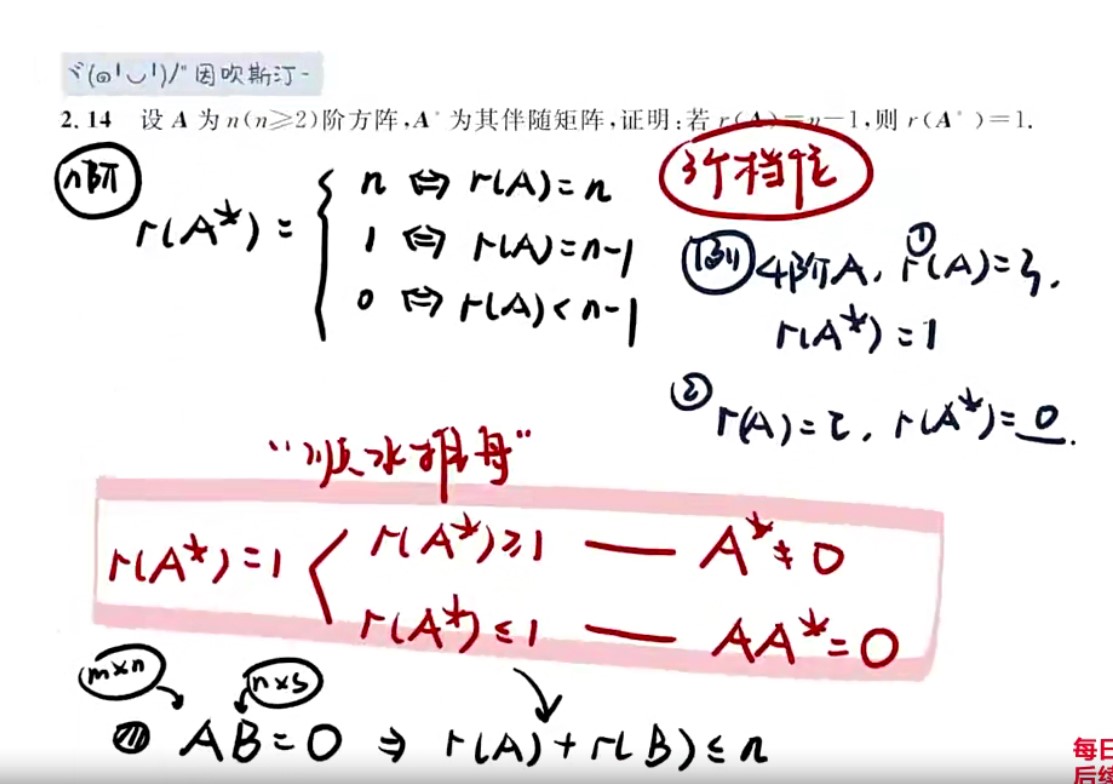 ヾ(๑╹◡╹)ﾉ" 因吹斯汀~
2.14 设 A 为 n(n≥2)阶方阵,A* 为其伴随矩阵,证明:若 r(A)=n-1,则 r(A*)=1.
n阶
r(A*) = { n ⇔ r(A)=n
1 ⇔ r(A)=n-1
0 ⇔ r(A)<n-1
3个档位
例 4阶A, ① r(A)=3,
r(A*)=1
② r(A)=2, r(A*)=0.
"顺水推舟"
r(A*)=1 < r(A*)≥1 — A*≠0
r(A*)≤1 — AA*=0
m×n n×s
AB=0 ⇒ r(A)+r(B)≤n
每日
后续